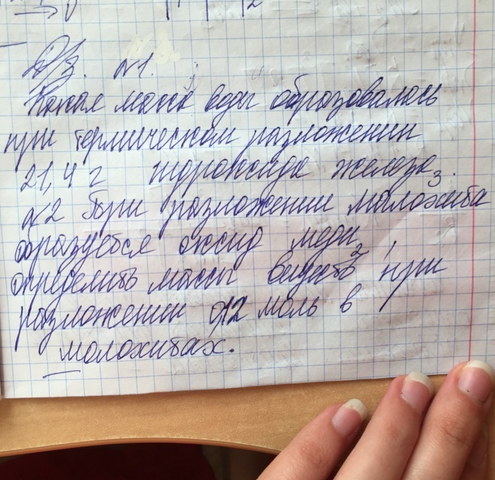 Д/з. №1.
Какая масса воды образовалась
при термическом разложении
21,4 г гидроксида железа3.
№2 При разложении малохита
образуется оксид меди2,
определить массы веществ при
разложении 0,2 моль в
молохитах.